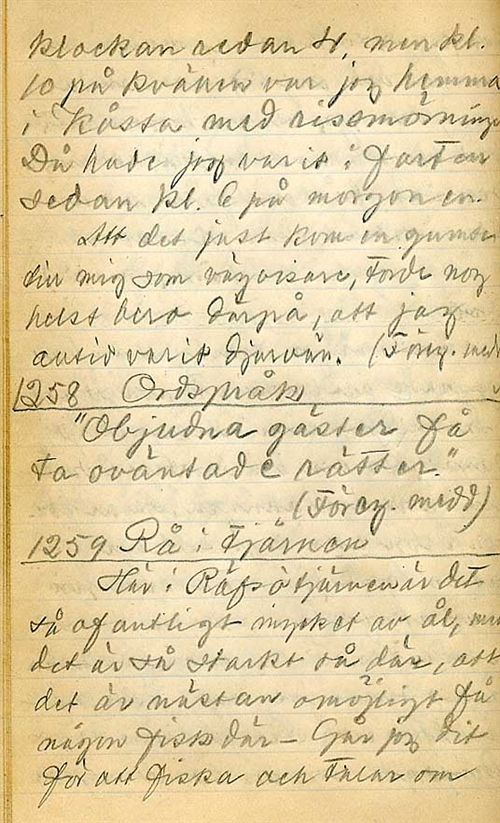 klockan redan 4, men kl.
10 på kvällen var jag hemma
i Kåssa med rissmörningen
Då hade jag varit i farten
sedan kl. 6 på morgonen.
Att det just kom en gumse
till mig som vägvisare, torde nog
helst bero därpå, att jag
alltid varit djurvän. (Föreg. medd
1258 Ordspråk
"Objudna gäster få
ta oväntade rätter."
(Föreg. medd)
1259 Rå i tjärnen
Här i Räfsötjärnen är det
så ofantligt mycket av ål, men
det är så starkt rå där, att
det är nästan omöjligt få
någon fisk där – Går jag dit
för att fiska och talar om